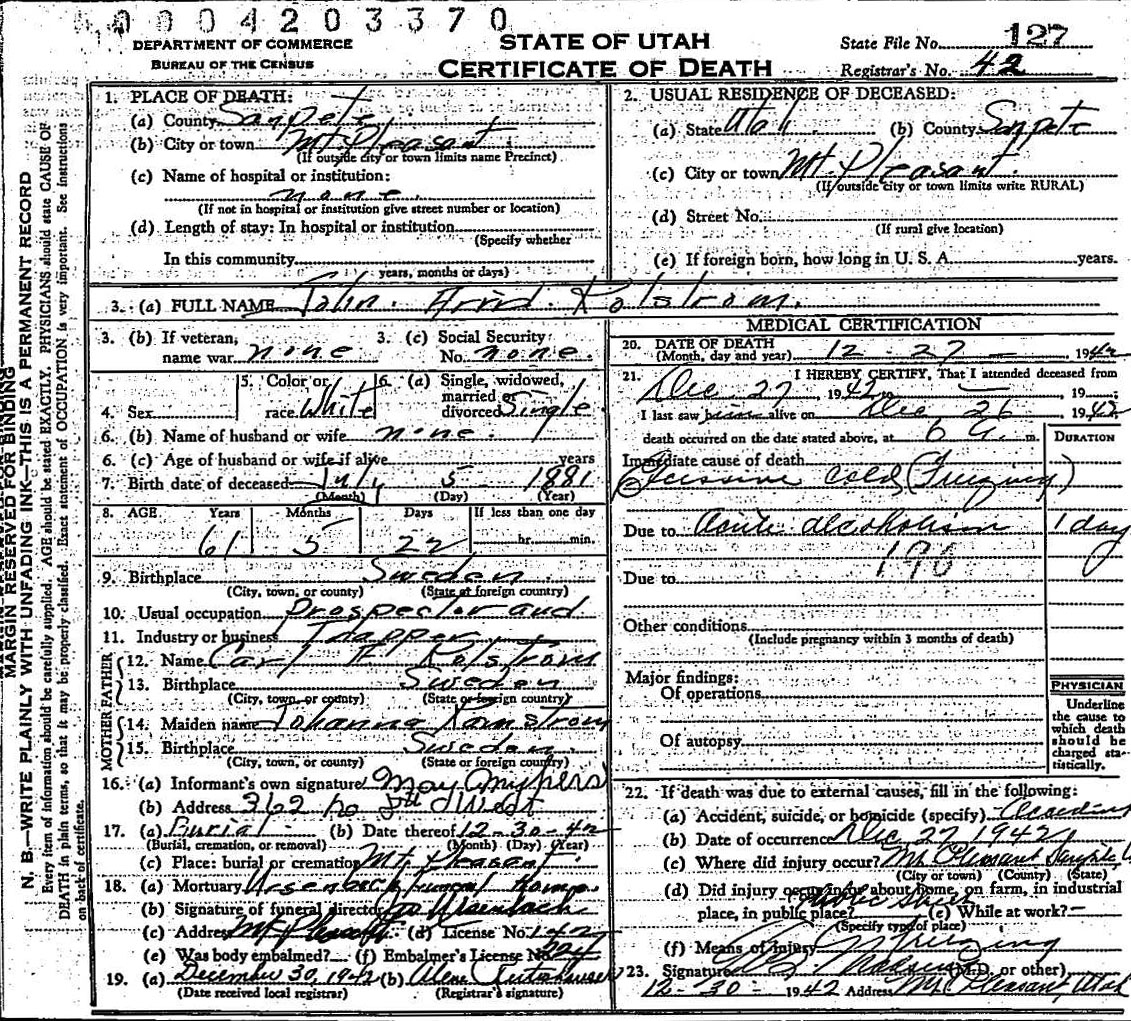 0004203370
DEPARTMENT OF COMMERCE
BUREAU OF THE CENSUS
STATE OF UTAH
CERTIFICATE OF DEATH
State File No. 127
Registrar's No. 42
MARGIN RESERVED FOR BINDING
N. B.—WRITE PLAINLY WITH UNFADING INK—THIS IS A PERMANENT RECORD
Every item of information should be carefully supplied. AGE should be stated EXACTLY. PHYSICIANS should state CAUSE OF
DEATH in plain terms, so that it may be properly classified. Exact statement of OCCUPATION is very important. See instructions
on back of certificate.
1. PLACE OF DEATH:
(a) County Sanpete
(b) City or town Mt. Pleasant
(If outside city or town limits name Precinct)
(c) Name of hospital or institution:
none
(If not in hospital or institution give street number or location)
(d) Length of stay: In hospital or institution
(Specify whether
In this community
years, months or days)
2. USUAL RESIDENCE OF DECEASED:
(a) State Utah (b) County Sanpete
(c) City or town Mt. Pleasant
(If outside city or town limits write RURAL)
(d) Street No.
(If rural give location)
(e) If foreign born, how long in U. S. A. years.
3. (a) FULL NAME John Arvid Rolstrom
3. (b) If veteran, name war none 3. (c) Social Security No. none
4. Sex 5. Color or race White 6. (a) Single, widowed, married or divorced Single
6. (b) Name of husband or wife none
6. (c) Age of husband or wife if alive years
7. Birth date of deceased July 5 1881
(Month) (Day) (Year)
8. AGE Years Months Days If less than one day
61 5 22 hr. min.
9. Birthplace Sweden
(City, town, or county) (State or foreign country)
10. Usual occupation Prospector and
11. Industry or business Trapper
FATHER
12. Name Carl F Rolstrom
13. Birthplace Sweden
(City, town, or county) (State or foreign country)
MOTHER
14. Maiden name Johanna Ramstrom
15. Birthplace Sweden
(City, town, or county) (State or foreign country)
16. (a) Informant's own signature May
(b) Address 362 no West
17. (a) Burial (b) Date thereof 12-30-42
(Burial, cremation, or removal) (Month) (Day) (Year)
(c) Place: burial or cremation Mt Pleasant
18. (a) Mortuary Ursenbach Funeral Home
(b) Signature of funeral director Ursenbach
(c) Address Mt Pleasant (d) License No. 142
(e) Was body embalmed? (f) Embalmer's License No.
19. (a) December 30, 1942 (b) Alene
(Date received local registrar) (Registrar's signature)
MEDICAL CERTIFICATION
20. DATE OF DEATH
(Month, day and year) 12 - 27 - 1942
21. I HEREBY CERTIFY, That I attended deceased from
Dec 27, 1942 — 19
I last saw him alive on Dec 26 1942
death occurred on the date stated above, at 6 A. m.
DURATION
Immediate cause of death
Excessive cold (Freezing)
Due to Acute alcoholism 1 day
Due to 196
Other conditions
(Include pregnancy within 3 months of death)
Major findings:
Of operations
Of autopsy
PHYSICIAN
Underline
the cause to
which death
should be
charged sta-
tistically.
22. If death was due to external causes, fill in the following:
(a) Accident, suicide, or homicide (specify) Accident
(b) Date of occurrence Dec 27 1942
(c) Where did injury occur? Mt Pleasant Sanpete U
(City or town) (County) (State)
(d) Did injury occur in or about home, on farm, in industrial
place, in public place? Public Street (e) While at work? -
(Specify type of place)
(f) Means of injury Freezing
23. Signature (M.D. or other)
12-30-1942 Address Mt Pleasant, Utah